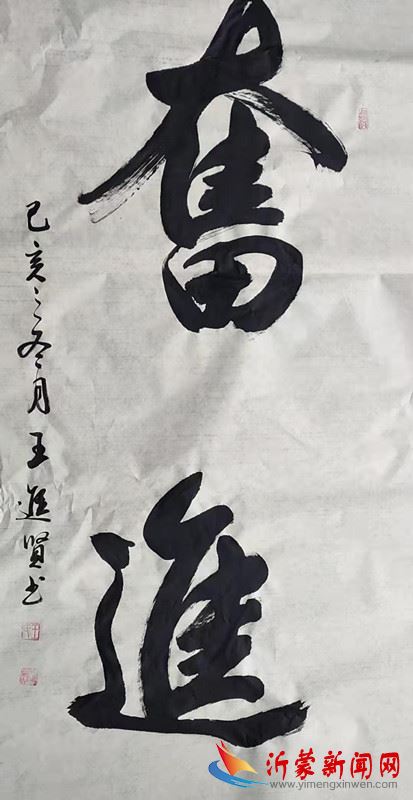 奮
進
己亥之冬月王進賢书
沂蒙新闻网
www.yimengxinwen.com